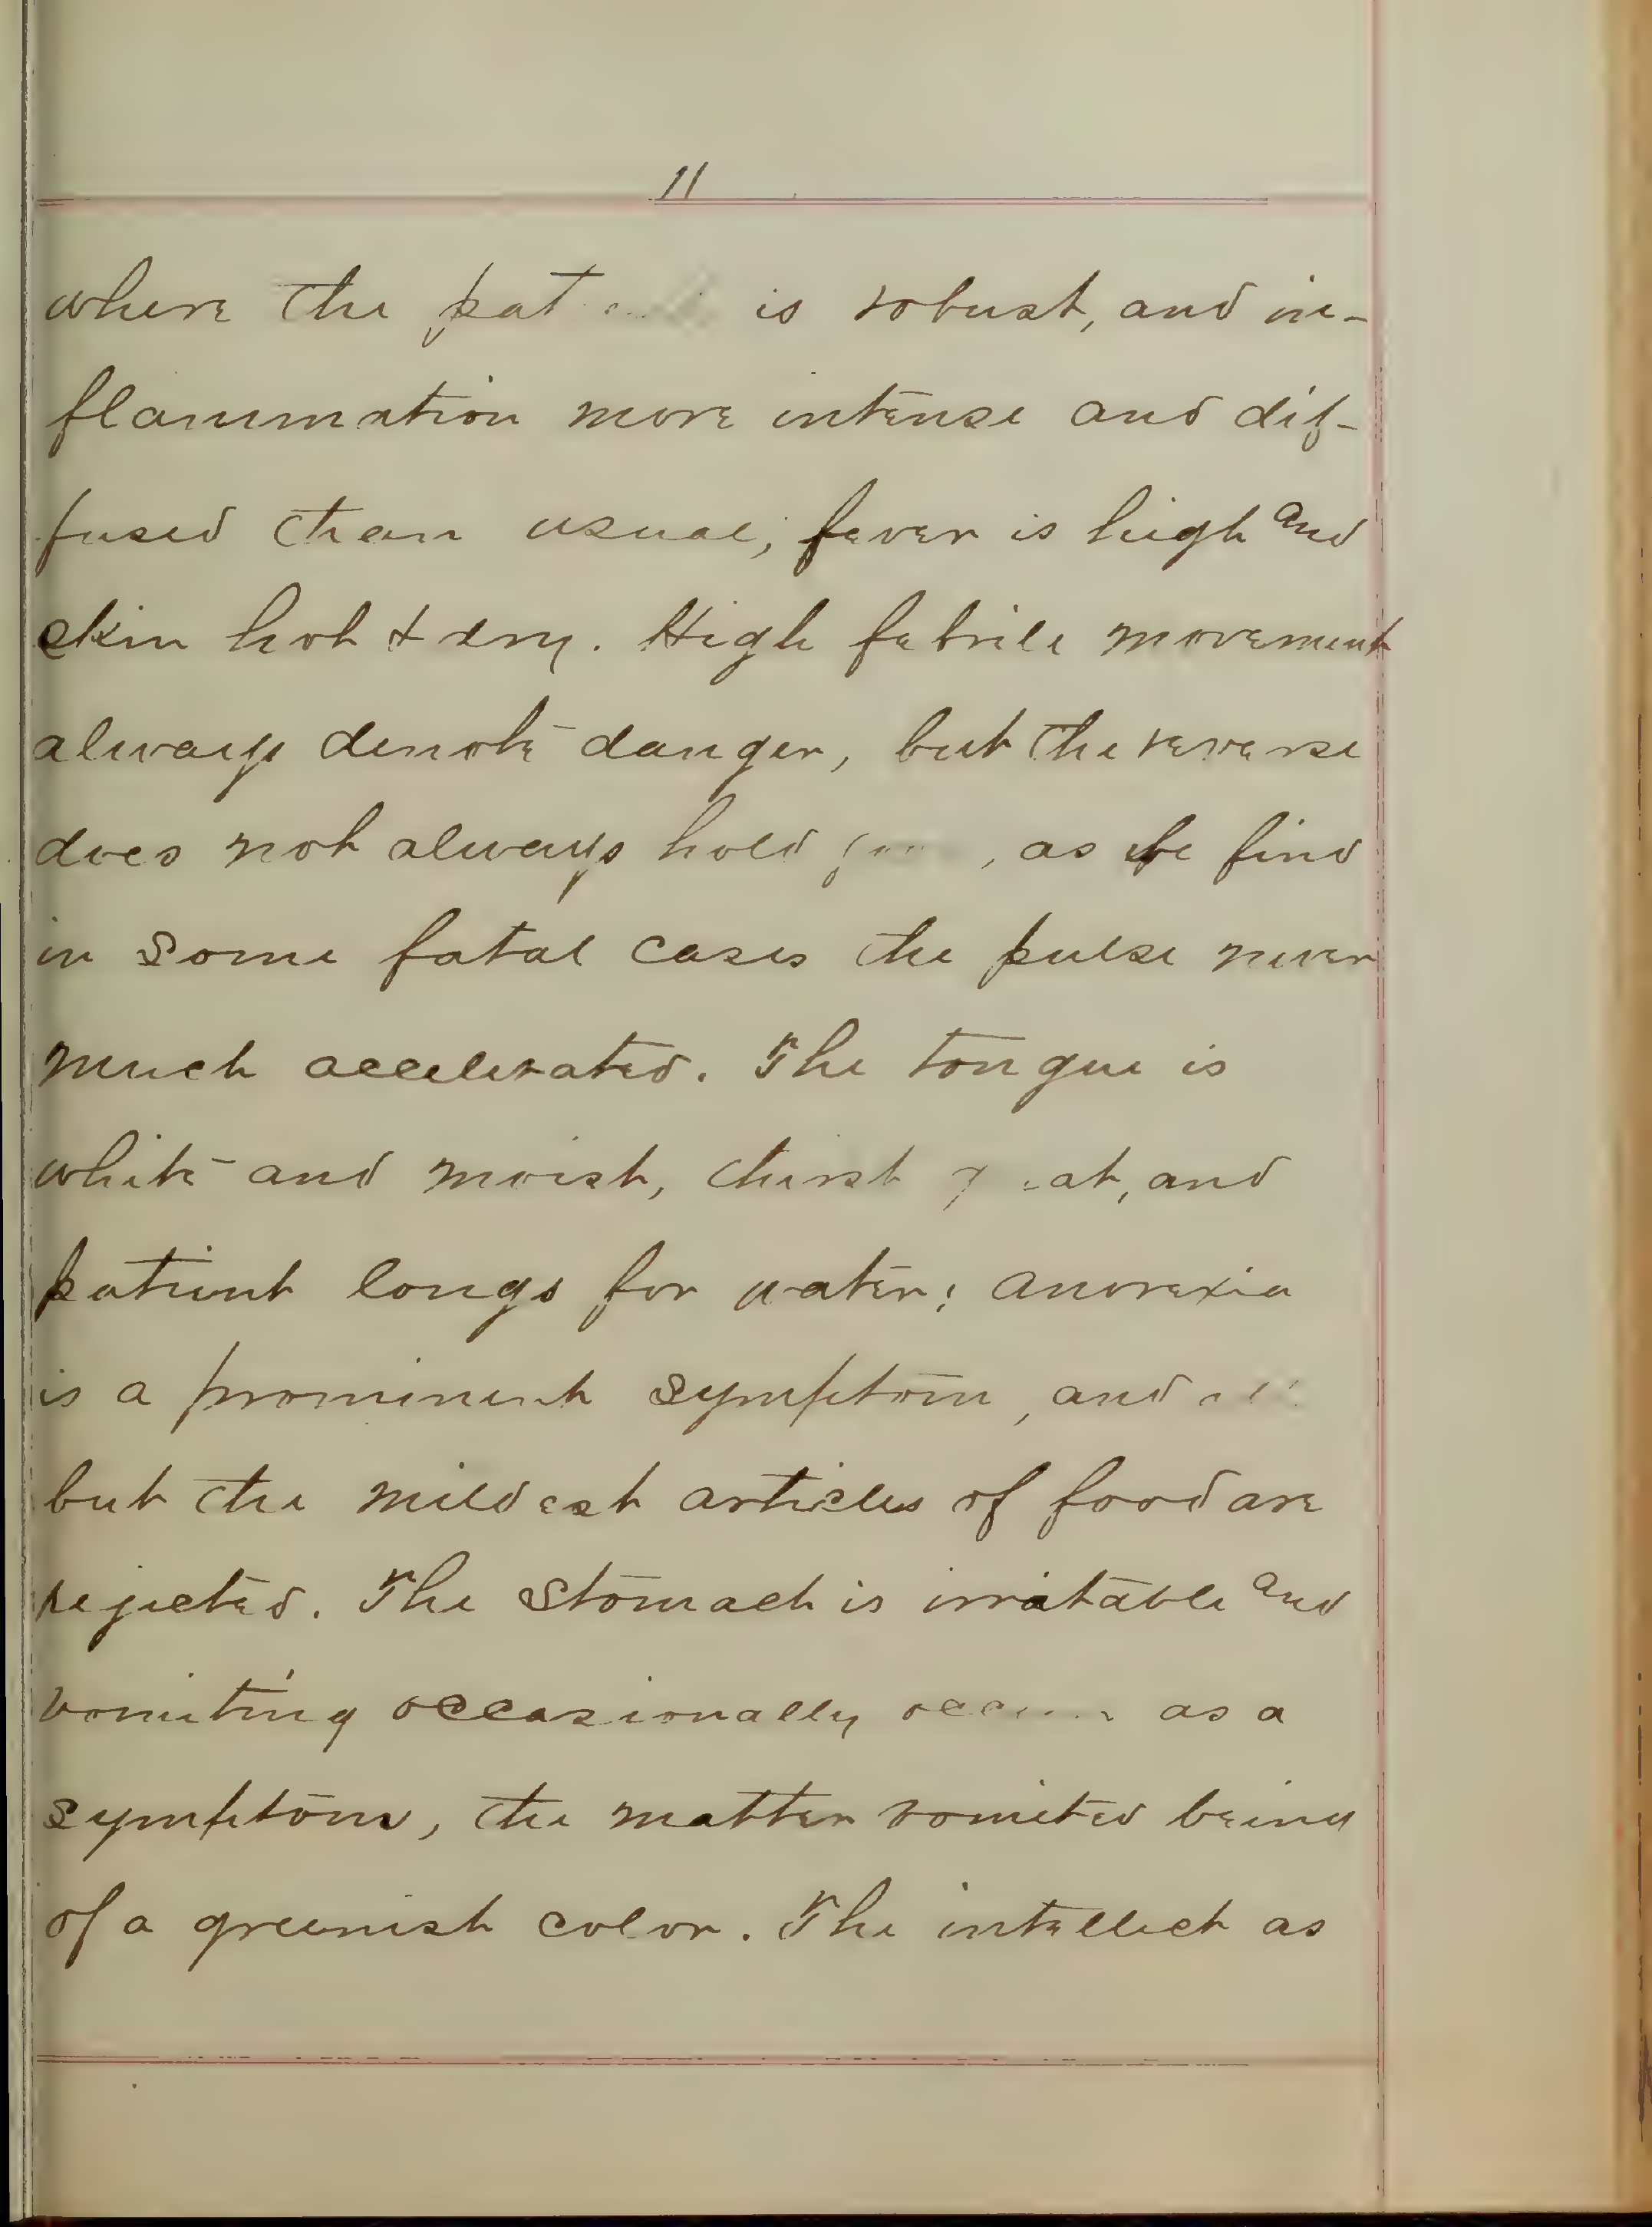 11
where the is robust, and in-
flammation more intense and dif-
fused than usual; fever is high and
skin hot & dry. High febrile movement
always denote danger, but the reverse
does not always hold , as we find
in some fatal cases the pulse never
much accelerated. The tongue is
white and moist, thirst great, and
patient longs for water; anorexia
is a prominent symptom, and all
but the mildest articles of food are
rejected. The stomach is irritable and
vomiting occasionally occurs as a
symptom, the matter vomited being
of a greenish color. The intellect as